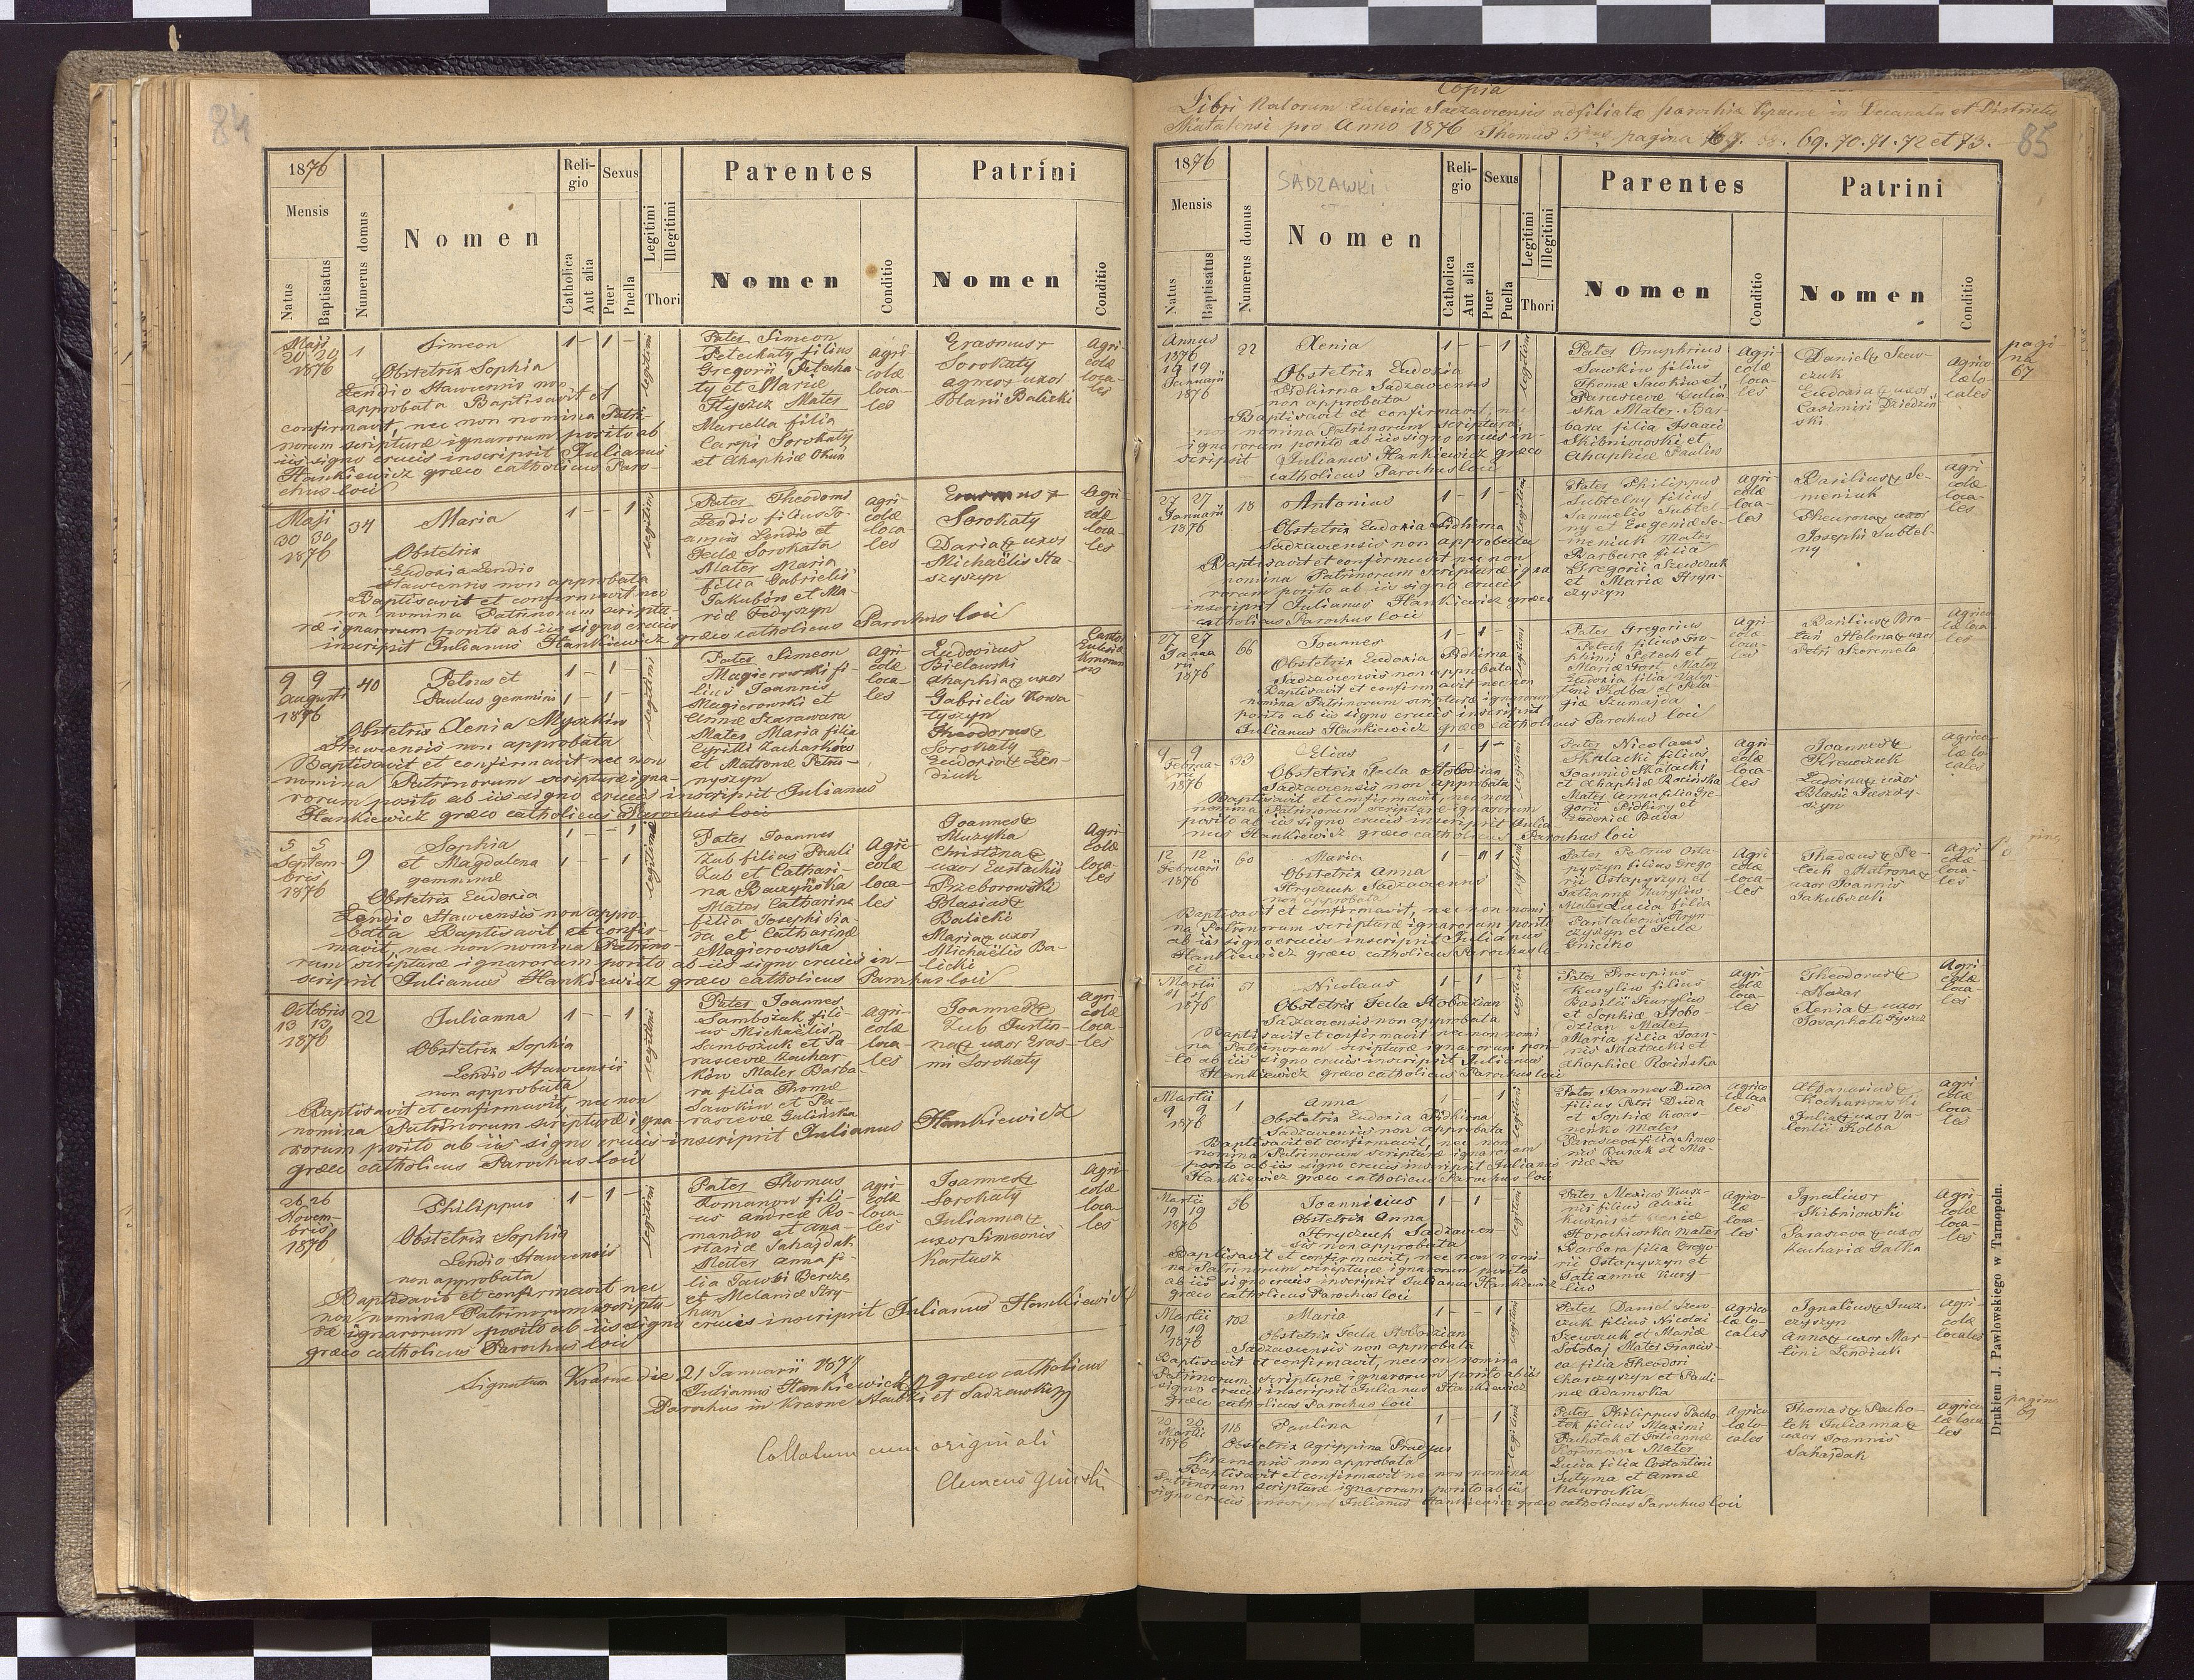 84
1876
Mensis
Natus
Baptisatus
Numerus domus
Nomen
Religio
Catholica
Aut alia
Sexus
Puer
Puella
Legitimi
Illegitimi
Thori
Parentes
Nomen
Conditio
Patrini
Nomen
Conditio
Maji
20 20
1876
1
Simeon
1 – 1 –
legitimi
Obstetrix Sophia
Lendio Stawensis non
approbata Baptisavit et
confirmavit, nec non nomina Patri-
norum scripturæ ignarorum posito ab
iis signo crucis inscripsit Julianus
Hankiewicz græco catholicus Paro-
chus loci
Pater Simeon
Peteckaty filius
Gregorii Petecka-
ty et Mariæ
Hyszcz Mater
Marcella filia
Carpi Sorokaty
et Ahaphiæ Okuń
Agri-
colæ
loca-
les
Erasmus +
Sorokaty
Agnes + uxor
Blasii Balicki
Agri-
colæ
loca-
les
Maji
30 30
1876
34
Maria
1 – – 1
legitimi
Obstetrix
Eudoxia Lendio
Stawensis non approbata
Baptisavit et confirmavit nec
non nomina Patrinorum scriptu-
ræ ignarorum posito ab iis signo crucis
inscripsit Julianus Hankiewicz græco catholicus Parochus loci
Pater Theodorus
Lendio filius Jo-
annis Lendio et
Teclæ Sorokata
Mater Maria
filia Gabrielis
Jakubów et Ma-
riæ Fedyszyn
Agri-
colæ
loca-
les
Erasmus +
Sorokaty
Daria + uxor
Michaëlis Sta-
szyszyn
Agri-
colæ
loca-
les
9 9
Augusti
1876
40
Petrus et
Paulus gemmini
1 – 1 –
1 – 1 –
legitimi
Obstetrix Xenia Myszków
Stawensis non approbata
Baptisavit et confirmavit nec non
nomina Patrinorum scripturæ igna-
rorum posito ab iis signo crucis inscripsit Julianus
Hankiewicz græco catholicus Parochus loci
Pater Simeon
Magierowski fi-
lius Joannis
Magierowski et
Annæ Szarawara
Mater Maria filia
Cyrilli Zacharków
et Matronæ Petru-
nyszyn
Agri-
colæ
loca-
les
Ludovicus
Bielawski
Ahaphia + uxor
Gabrielis Kowa-
tyszyn
Theodorus +
Sorokaty
Eudoxia + Len-
diuk
Cantor
Ecclesiæ
5 5
Septem-
bris
1876
9
Sophia
et Magdalena
gemminæ
1 – – 1
1 – – 1
legitimæ
Obstetrix Eudoxia
Lendio Stawensis non appro-
bata Baptisavit et confir-
mavit, nec non nomina Patrino-
rum scripturæ ignarorum posito ab iis signo crucis in-
scripsit Julianus Hankiewicz græco catholicus Parochus loci
Pater Joannes
Zub filius Pauli
Zub et Cathari-
na Raczyńska
Mater Catharina
filia Josephi Sia-
ra et Catharinæ
Magierowska
Agri-
colæ
loca-
les
Joannes +
Muzyka
Christina +
uxor Eustachii
Przeborowski
Blasius +
Balicki
Maria + uxor
Michaëlis Ba-
licki
Agri-
colæ
loca-
les
Octobris
13 13
1876
22
Julianna
1 – – 1
legitimi
Obstetrix Sophia
Lendio Stawensis
non approbata
Baptisavit et confirmavit, nec non
nomina Patrinorum scripturæ igna-
rorum posito ab iis signo crucis inscripsit Julianus Hankiewicz
græco catholicus Parochus loci
Pater Joannes
Sambożuk fili-
us Michaëlis
Sambożuk et Pa-
rascevæ Zachar-
ków Mater Barba-
ra filia Thomæ
Sawków et Pa-
rascevæ Gulińska
Agri-
colæ
loca-
les
Joannes +
Zub Justin-
na + uxor Eras-
mi Sorokaty
Agri-
colæ
loca-
les
26 26
Novem-
bris
1876
Philippus
1 – 1 –
legitimi
Obstetrix Sophia
Lendio Stawensis
non approbata
Baptisavit et confirmavit nec
non nomina Patrinorum scriptu-
ræ ignarorum posito ab iis signo crucis inscripsit Julianus Hankiewicz
græco catholicus Parochus loci
Pater Thomas
Romanow fili-
us Andreæ Ro-
manów et Ana-
stasiæ Sahajdak
Mater Anna fi-
lia Jacobi Bereze
et Melaniæ Stry-
han
Agri-
colæ
loca-
les
Joannes +
Sorokaty
Julianna +
uxor Simeonis
Kartusz
Agri-
colæ
loca-
les
Signatum Krasne die 21 Januarii 1877
Julianus Hankiewicz græco catholicus
Parochus in Krasne Stawki et Sadzawki
Collatum cum originali
85
Copia
Libri Natorum Ecclesiæ Sadzavensis adfiliatæ parochiæ Krasne in Decanatu et Districtu
Skalatensi pro Anno 1876 Thomus 3tius pagina 67. 68. 69. 70. 71. 72 et 73.
1876
SADZAWKI
Mensis
Natus
Baptisatus
Numerus domus
Nomen
Religio
Catholica
Aut alia
Sexus
Puer
Puella
Legitimi
Illegitimi
Thori
Parentes
Nomen
Conditio
Patrini
Nomen
Conditio
pagi-
na
67
Annus
1876
19 19
Januarii
1876
22
Xenia
1 – – 1
legitimi
Obstetrix Eudoxia
Pidhirna Sadzavensis
non approbata
Baptisavit et confirmavit, nec
non nomina Patrinorum scripturæ
ignarorum posito ab iis signo crucis in-
scripsit Julianus Hankiewicz græco
catholicus Parochus loci
Pater Onuphrius
Sawków filius
Thomæ Sawków et
Parascevæ Guliń-
ska Mater Bar-
bara filia Isaaci
Skibniowski et
Ahaphiæ Pauliw
Agri-
colæ
loca-
les
Daniel + Szew-
czuk
Eudoxia + uxor
Casimiri Dziedziń-
ski
Agrico-
læ lo-
cales
27 27
Januarii
1876
18
Antonius
1 – 1 –
legitimi
Obstetrix Eudoxia Pidhirna
Sadzavensis non approbata
Baptisavit et confirmavit nec non
nomina Patrinorum scripturæ igna-
rorum posito ab iis signo crucis
inscripsit Julianus Hankiewicz græco
catholicus Parochus loci
Pater Philippus
Subtelny filius
Samuelis Subtel-
ny et Eugeniæ Se-
meniuk Mater
Barbara filia
Gregorii Szewczuk
et Mariæ Hryn-
czyszyn
Agri-
colæ
loca-
les
Basilius + Se-
meniuk
Theurona + uxor
Josephi Subtel-
ny
Agri-
colæ
loca-
les
27 27
Janua-
rii
1876
66
Joannes
1 – 1 –
legitimi
Obstetrix Eudoxia Pidhirna
Sadzavensis non approbata
Baptisavit et confirmavit nec non
nomina Patrinorum scripturæ ignarorum
posito ab iis signo crucis inscripsit
Julianus Hankiewicz græco catholicus Parochus loci
Pater Gregorius
Petech filius Tro-
phimi Petech et
Mariæ Fort Mater
Eudoxia filia Valen-
tini Kolba et Pela-
giæ Szumajda
Agri-
colæ
loca-
les
Basilius + Bra-
tań Helena + uxor
Petri Szeremeta
Agrico-
læ loca-
les
9 9
Februa-
rii
1876
33
Elias
1 – 1 –
legitimi
Obstetrix Tecla Stobodzian
Sadzavensis non approbata
Baptisavit et confirmavit, nec non
nomina Patrinorum scripturæ ignarorum
posito ab iis signo crucis inscripsit Julia-
nus Hankiewicz græco catholicus Parochus loci
Pater Nicolaus
Skalacki filius
Joannis Skalacki
et Ahaphiæ Rocińska
Mater Anna filia Gre-
gorii Pidhirny et
Eudoxiæ Buda
Agri-
colæ
loca-
les
Joannes +
Krawczuk
Eudoxia + uxor
Blasii Juszczy-
szyn
Agrico-
læ lo-
cales
12 12
Februarii
1876
60
Maria
1 – – 1
legitimi
Obstetrix Anna
Hryczuch Sadzavensis
non approbata
Baptisavit et confirmavit, nec non nomi-
na Patrinorum scripturæ ignarorum posito
ab iis signo crucis inscripsit Julianus
Hankiewicz græco catholicus Parochus lo-
ci
Pater Petrus Osta-
pyszyn filius Grego-
rii Ostapyszyn et
Tatiannæ Kuryliw
Mater Lucia filia
Pantaleonis Hryn-
czyszyn et Teclæ
Gniciko
Agri-
colæ
loca-
les
Thadeus + Pe-
tech Matrona +
uxor Joannis
Jakubczak
Agri-
colæ
loca-
les
Martii
1876
51
Nicolaus
1 – 1 –
legitimi
Obstetrix Tecla Stobodzian
Sadzavensis non approbata
Baptisavit et confirmavit nec non nomi-
na Patrinorum scripturæ ignarorum posi-
to ab iis signo crucis inscripsit Julianus
Hankiewicz græco catholicus Parochus loci
Pater Procopius
Kuryliw filius
Basilii Kuryliw
et Sophiæ Stobo-
dzian Mater
Maria filia Joan-
nis Skalacki et
Ahaphiæ Rocińska
Agri-
colæ
loca-
les
Theodorus +
Mazar
Xenia + uxor
Josaphati Hyszcz
Agri-
colæ
loca-
les
Martii
9 9
1876
1
Anna
1 – – 1
legitimi
Obstetrix Eudoxia Pidhirna
Sadzavensis non approbata
Baptisavit et confirmavit, nec non
nomina Patrinorum scripturæ ignarorum
posito ab iis signo crucis inscripsit Julianus
Hankiewicz græco catholicus Parochus loci
Pater Joannes Duda
filius Petri Duda
et Sophiæ Kwas-
nenko Mater
Parasceva filia Simeo-
nis Rusak et Ma-
riæ
Agrico-
læ loca-
les
Athanasius +
Kochanowski
Julia + uxor Va-
lentii Kolba
Agri-
colæ
loca-
les
Martii
19 19
1876
56
Joannicius
1 – 1 –
legitimi
Obstetrix Anna
Hryczuch Sadzaven-
sis non approbata
Baptisavit et confirmavit, nec non nomi-
na Patrinorum scripturæ ignarorum posito
ab iis signo crucis inscripsit Julianus Hankiewicz
græco catholicus Parochus loci
Pater Alexius Kusz-
nir filius Alexii
Kusznir et Xeniæ
Horochiwska Mater
Barbara filia Grego-
rii Ostapyszyn et
Tatiannæ Kury-
liw
Agrico-
læ
loca-
les
Ignatius +
Skibniowski
Parasceva + uxor
Zachariæ Galka
Agri-
colæ
loca-
les
Martii
19 19
1876
102
Maria
1 – – 1
legitimi
Obstetrix Tecla Stobodzian
Sadzavensis non approbata
Baptisavit et confirmavit, nec non nomina
Patrinorum scripturæ ignarorum posito ab iis
signo crucis inscripsit Julianus Hankiewicz
græco catholicus Parochus loci
Pater Daniel Szew-
czuk filius Nicolai
Szewczuk et Mariæ
Sotobaj Mater Francis-
ca filia Theodori
Charczyszyn et Pauli-
næ Adamska
Agrico-
læ lo-
cales
Ignatius + Jusz-
czyszyn
Anna + uxor Mar-
tini Lendiuk
Agri-
colæ
locales
pagina
69
20 20
Martii
1876
118
Paulina
1 – – 1
legitimi
Obstetrix Agrippina Prudyus
Krasnensis non approbata
Baptisavit et confirmavit nec non nomina
Patrinorum scripturæ ignarorum posito ab iis
signo crucis inscripsit Julianus Hankiewicz græco catholicus Parochus loci
Pater Philippus Pacho-
tek filius Maximi
Pachotek et Tatiannæ
Kordonowa Mater
Lucia filia Costantini
Sutyma et Annæ
Nawrocka
Agrico-
læ lo-
cales
Thomas + Pacho-
tek Julianna +
uxor Joannis
Sahajdak
Agrico-
læ loca-
les
Drukiem J. Pawłowskiego w Tarnopolu.